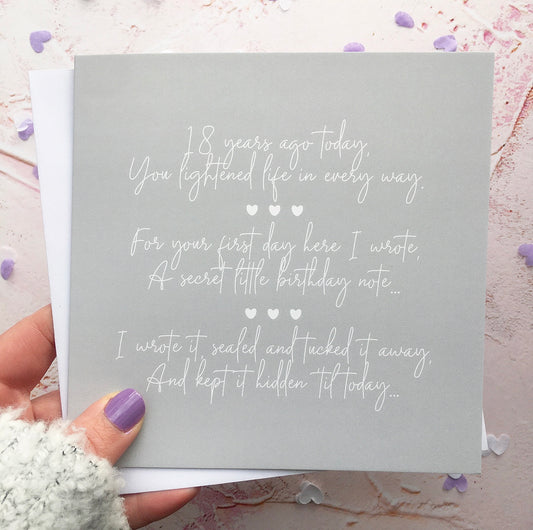 18 years ago today,
You lightened life in every way.
For your first day here I wrote,
A secret little birthday note...
I wrote it, sealed and tucked it away,
And kept it hidden 'til today...